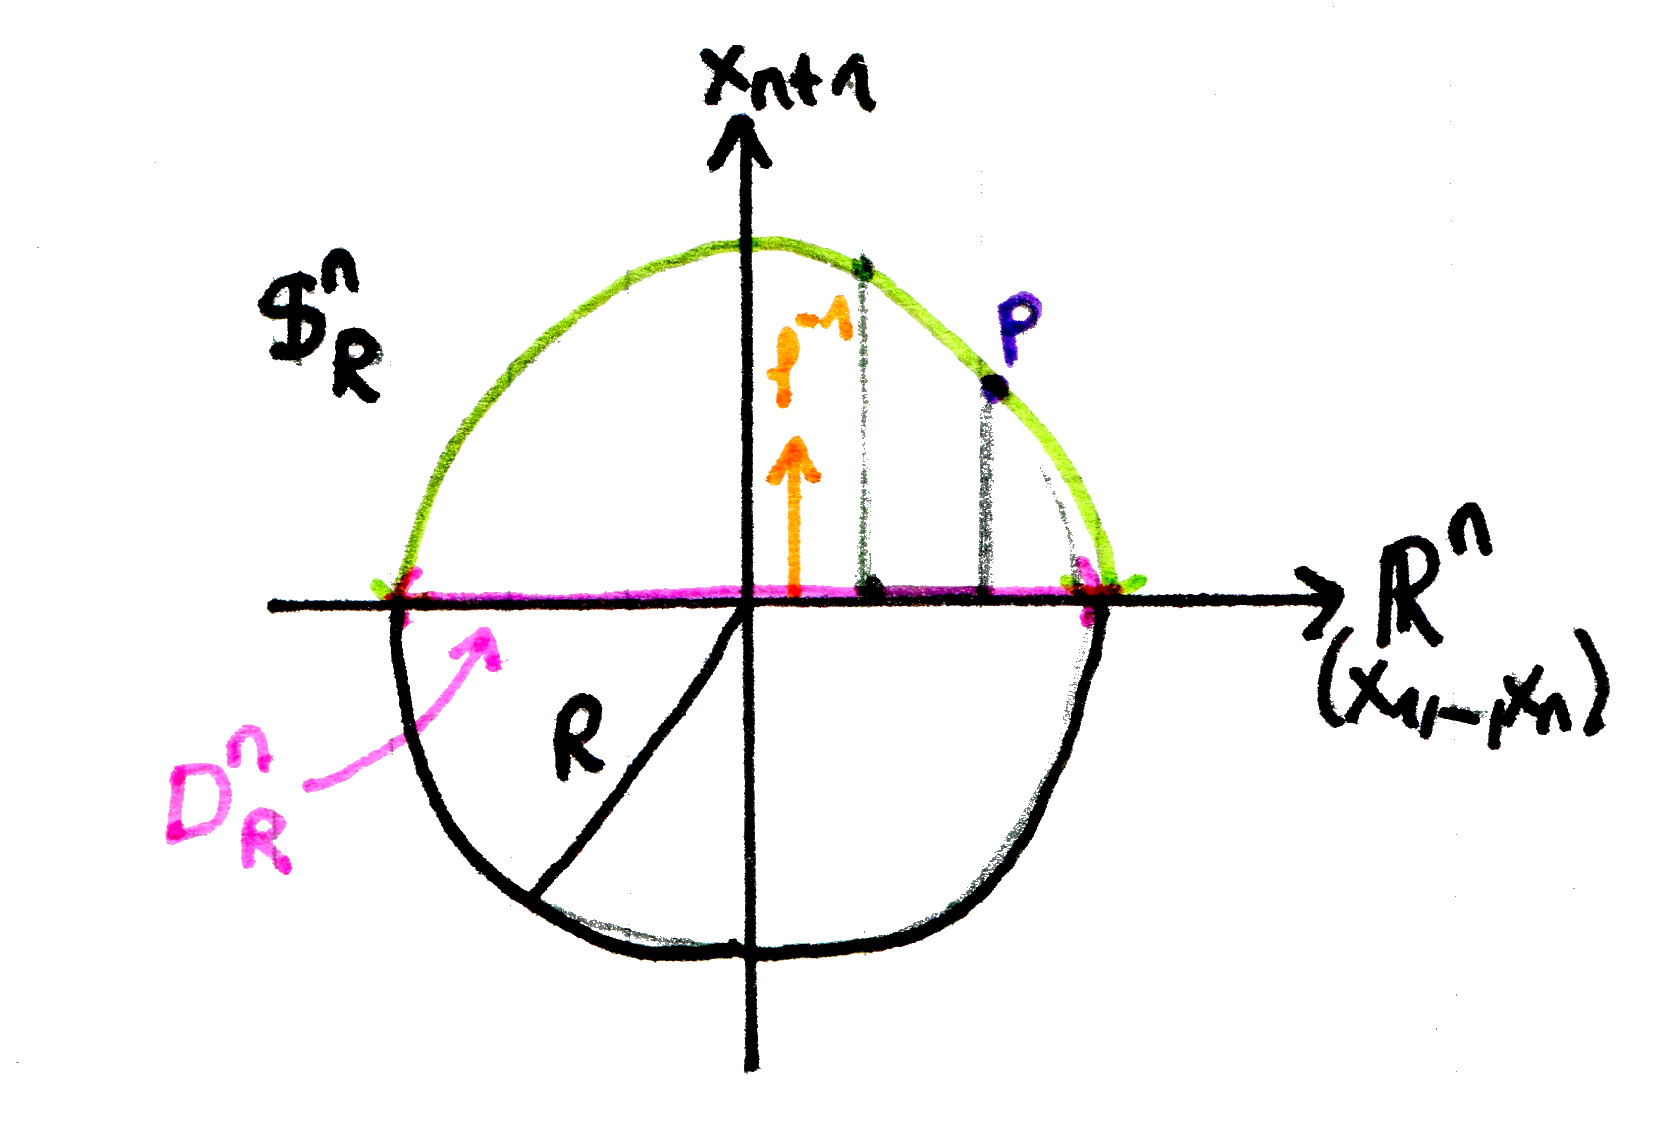 xₙ₊₁
$ⁿ_R
f⁻¹
P
ℝⁿ
(x₁,–,xₙ)
R
Dⁿ_R